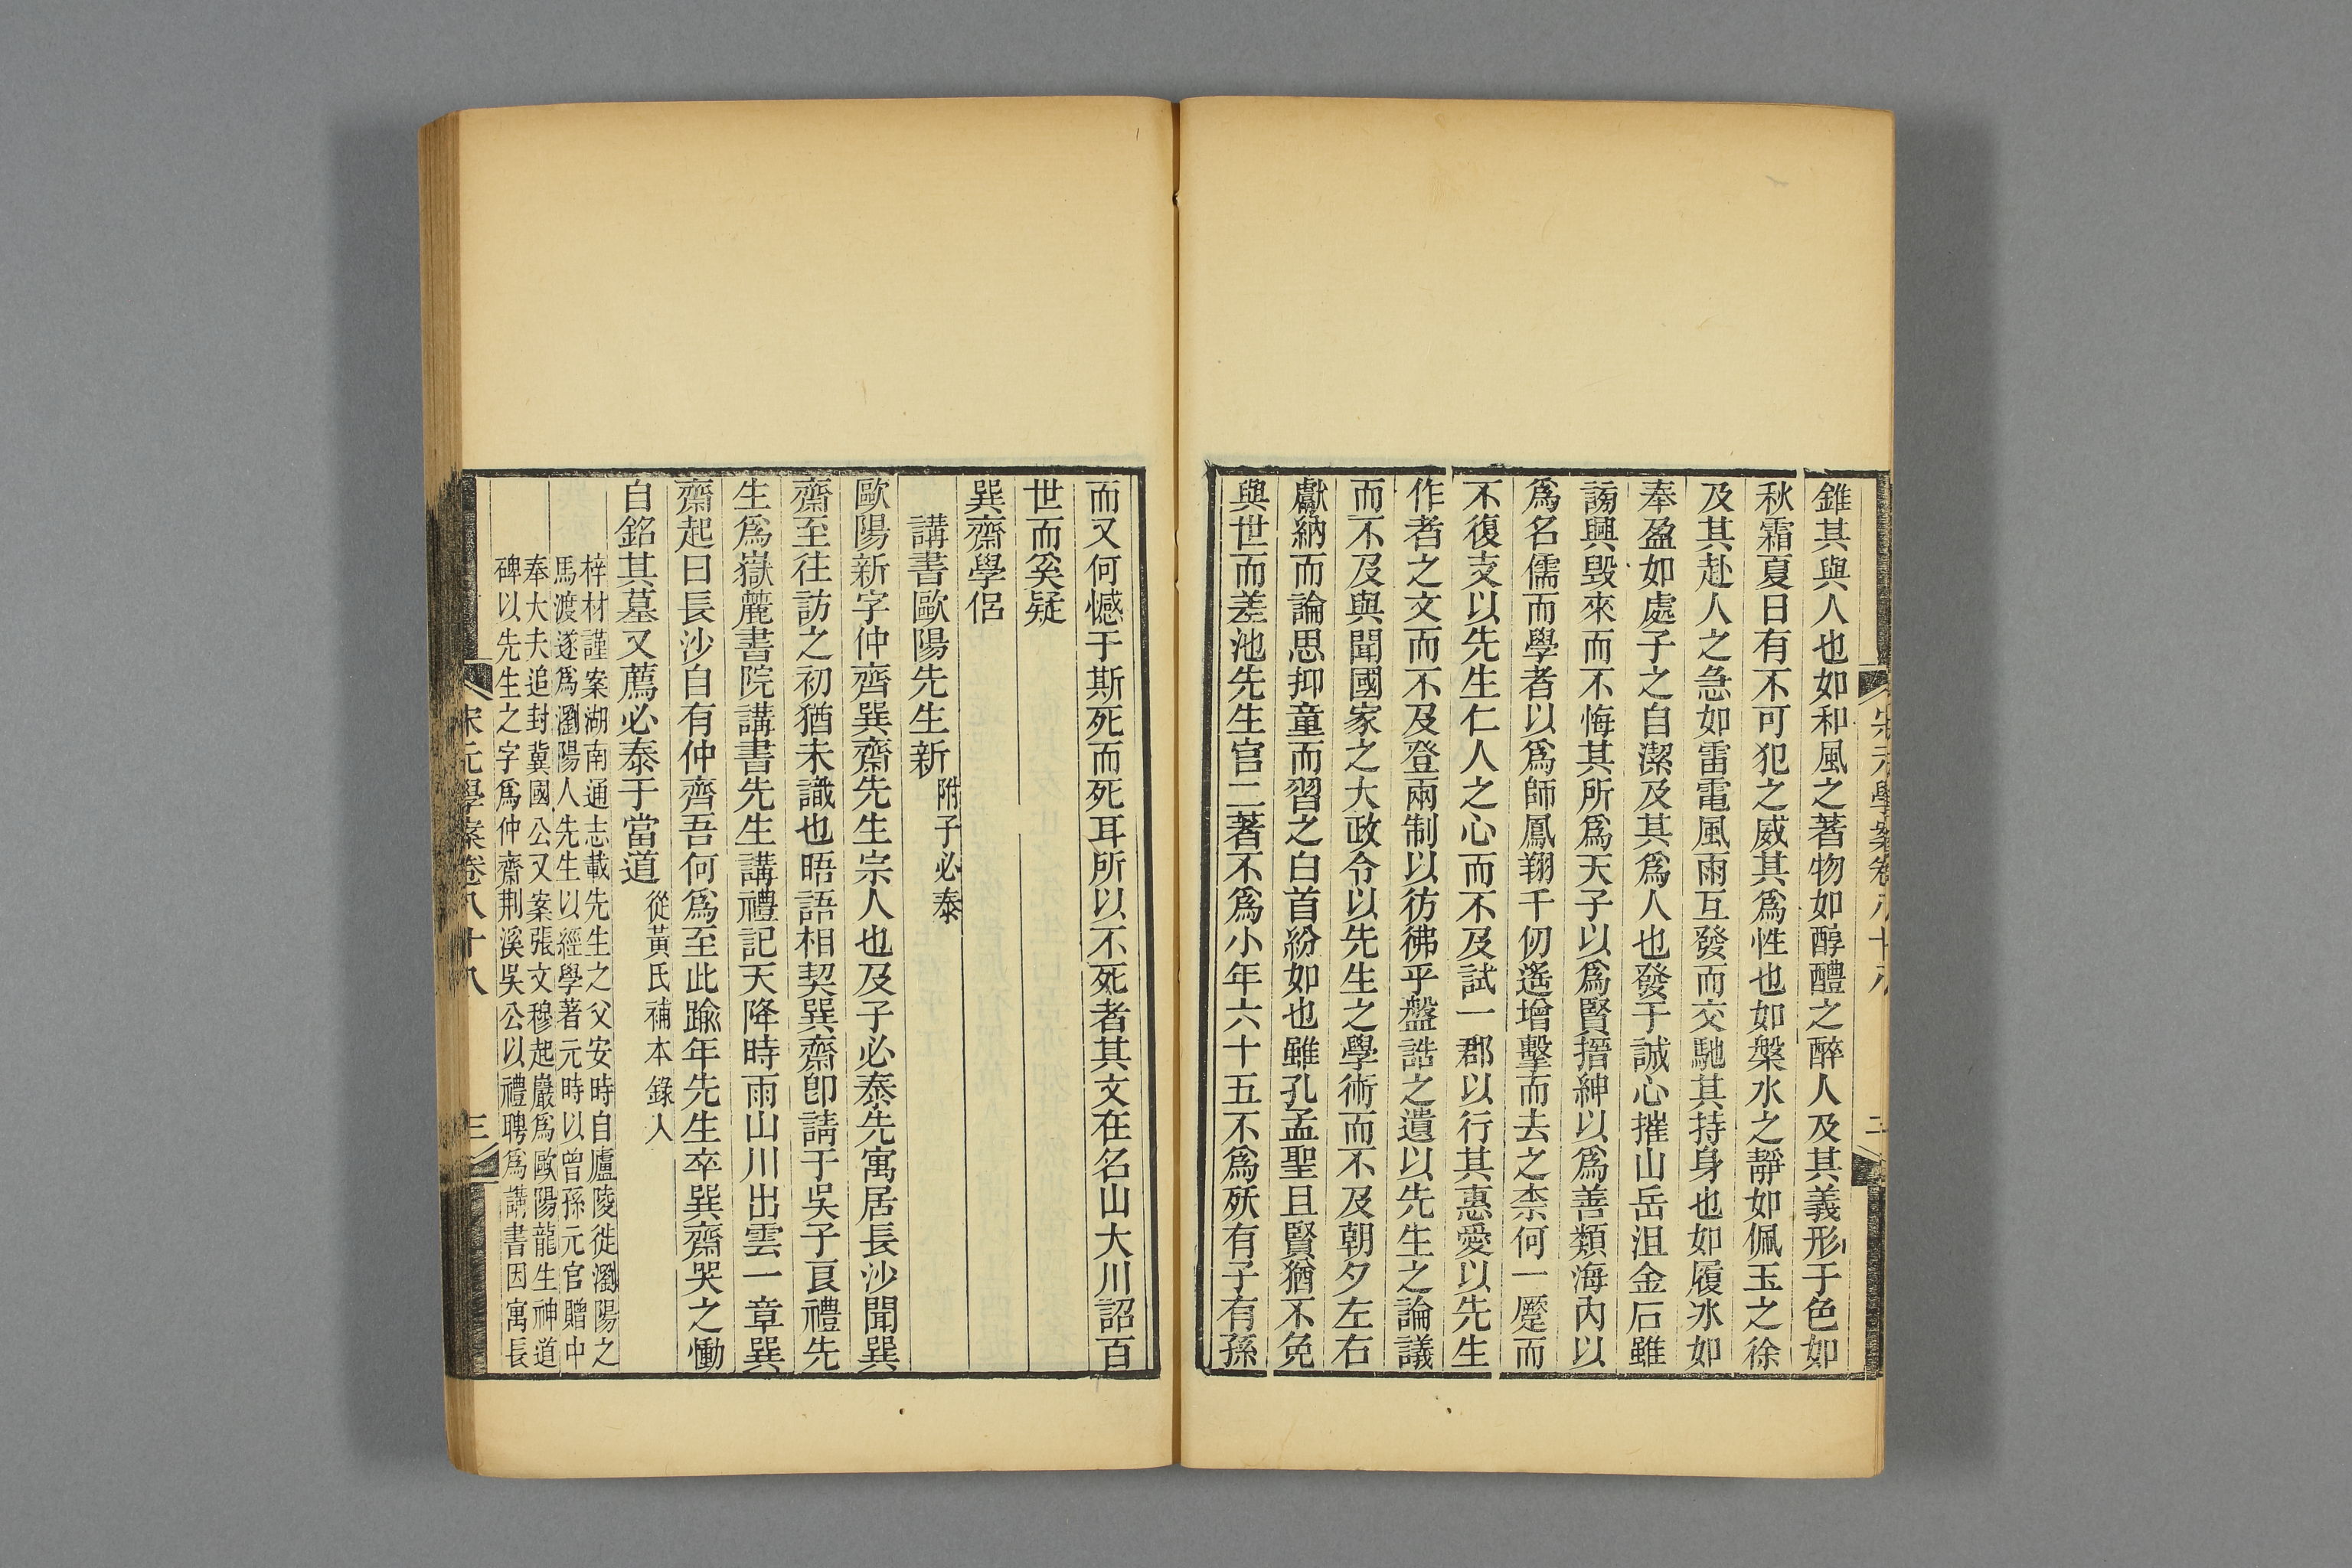 宋元學案卷八十八
二
錐其與人也如和風之著物如醇醴之醉人及其義形于色如
秋霜夏日有不可犯之威其爲性也如槃水之靜如佩玉之徐
及其赴人之急如雷電風雨互發而交馳其持身也如履冰如
奉盈如處子之自潔及其爲人也發于誠心摧山岳沮金石雖
謗興毀來而不悔其所爲天子以爲賢搢紳以爲善類海內以
爲名儒而學者以爲師鳳翔千仞遙增擊而去之柰何一蹷而
不復支以先生仁人之心而不及試一郡以行其惠愛以先生
作者之文而不及登兩制以彷彿乎盤誥之遺以先生之論議
而不及與聞國家之大政令以先生之學術而不及朝夕左右
獻納而論思抑童而習之白首紛如也雖孔孟聖且賢猶不免
與世而差池先生官二著不爲小年六十五不爲殀有子有孫
而又何憾于斯死而死耳所以不死者其文在名山大川詔百
世而奚疑
巽齋學侶
講書歐陽先生新附子必泰
歐陽新字仲齊巽齋先生宗人也及子必泰先寓居長沙聞巽
齋至往訪之初猶未識也晤語相契巽齋卽請于吳子良禮先
生爲嶽麓書院講書先生講禮記天降時雨山川出雲一章巽
齋起曰長沙自有仲齊吾何爲至此踰年先生卒巽齋哭之慟
自銘其墓又薦必泰于當道從黃氏補本錄入
梓材謹案湖南通志載先生之父安時自廬陵徙瀏陽之
馬渡遂爲瀏陽人先生以經學著元時以曾孫元官贈中
奉大夫追封冀國公又案張文穆起巖爲歐陽龍生神道
碑以先生之字爲仲齋荆溪吳公以禮聘爲講書因寓長
宋元學案卷八十八
三